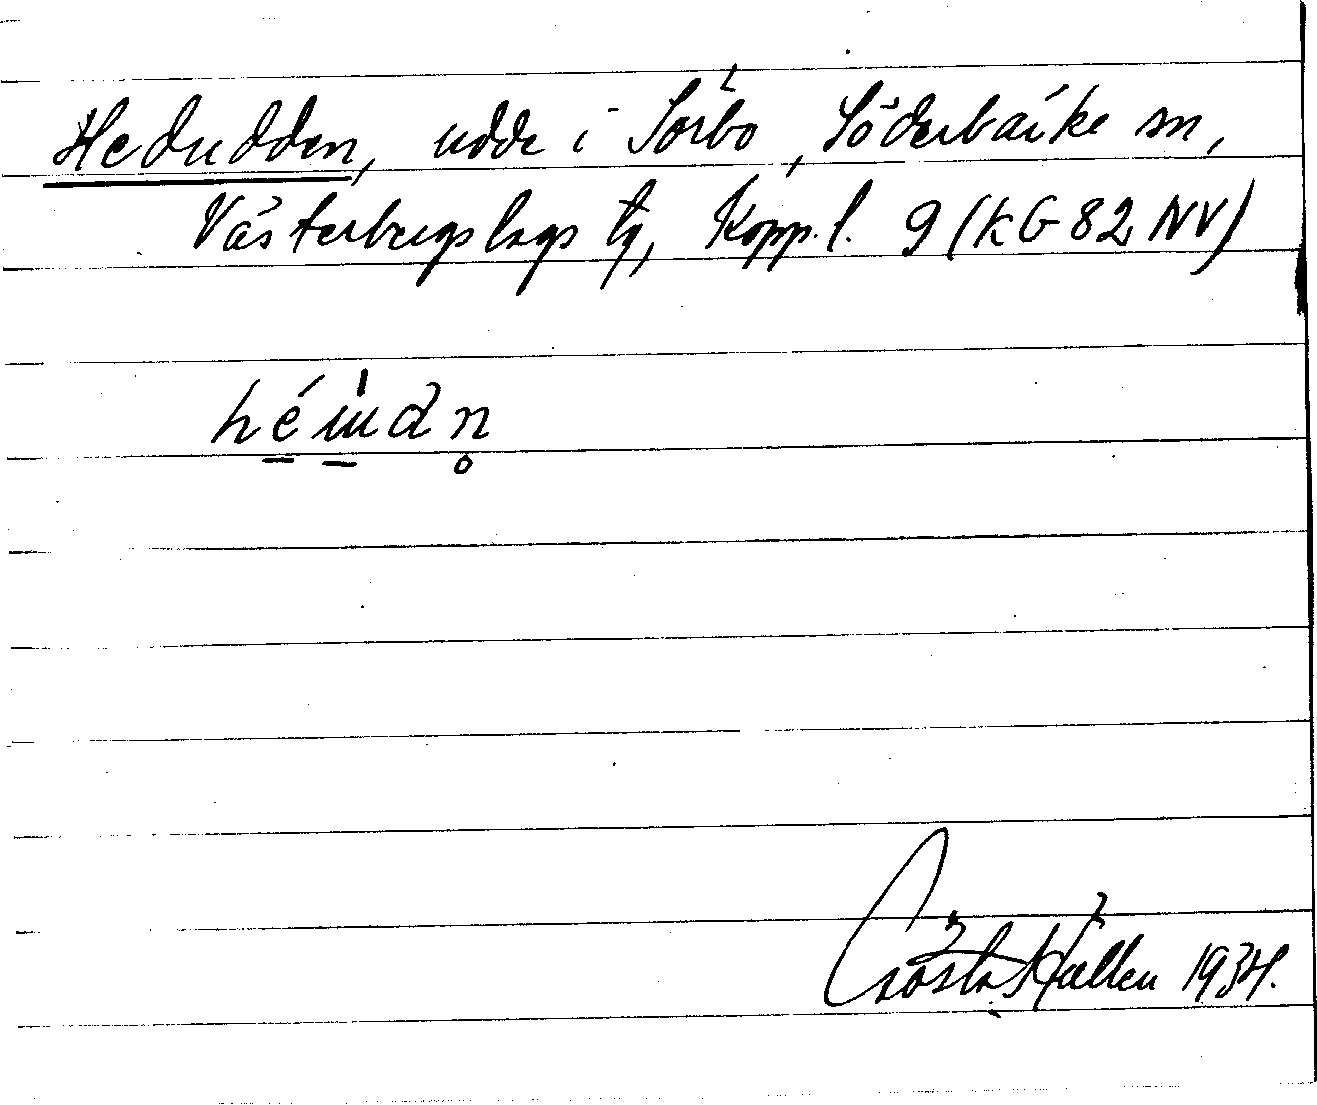 Hedudden, udde i Sörbo, Söderbärke sn,
Västerbergslags tg, Kopp. l. 9 (KG 82 NV)
Gösta Hallen 1934.